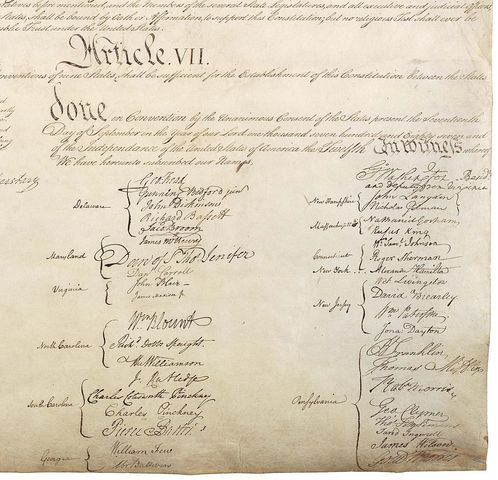 Motives before mentioned, and the Members of the several State Legislatures, and all executive and judicial officers,
States, shall be bound by Oath or Affirmation, to support this Constitution; but no religious Test shall ever be
public Trust under the United States.
Article. VII.
onventions of nine States, shall be sufficient for the Establishment of this Constitution between the States
done in Convention by the Unanimous Consent of the States present the Seventeenth
Day of September in the Year of our Lord one thousand seven hundred and Eighty seven and
of the Independence of the United States of America the Twelfth In Witness whereof
We have hereunto subscribed our Names,
Go Washington
and deputy from Virginia
Delaware
Geo: Read
Gunning Bedford jun
John Dickinson
Richard Bassett
Jaco: Broom
Maryland
James McHenry
Dan of St Thos Jenifer
Danl Carroll
Virginia
John Blair
James Madison Jr
North Carolina
Wm Blount
Richd Dobbs Spaight
Hu Williamson
South Carolina
J. Rutledge
Charles Cotesworth Pinckney
Charles Pinckney
Pierce Butler
Georgia
William Few
Abr Baldwin
New Hampshire
John Langdon
Nicholas Gilman
Massachusetts
Nathaniel Gorham
Rufus King
Connecticut
Wm Saml Johnson
Roger Sherman
New York
Alexander Hamilton
New Jersey
Wil: Livingston
David Brearley
Wm Paterson
Jona: Dayton
Pensylvania
B Franklin
Thomas Mifflin
Robt Morris
Geo. Clymer
Thos FitzSimons
Jared Ingersoll
James Wilson
Gouv Morris